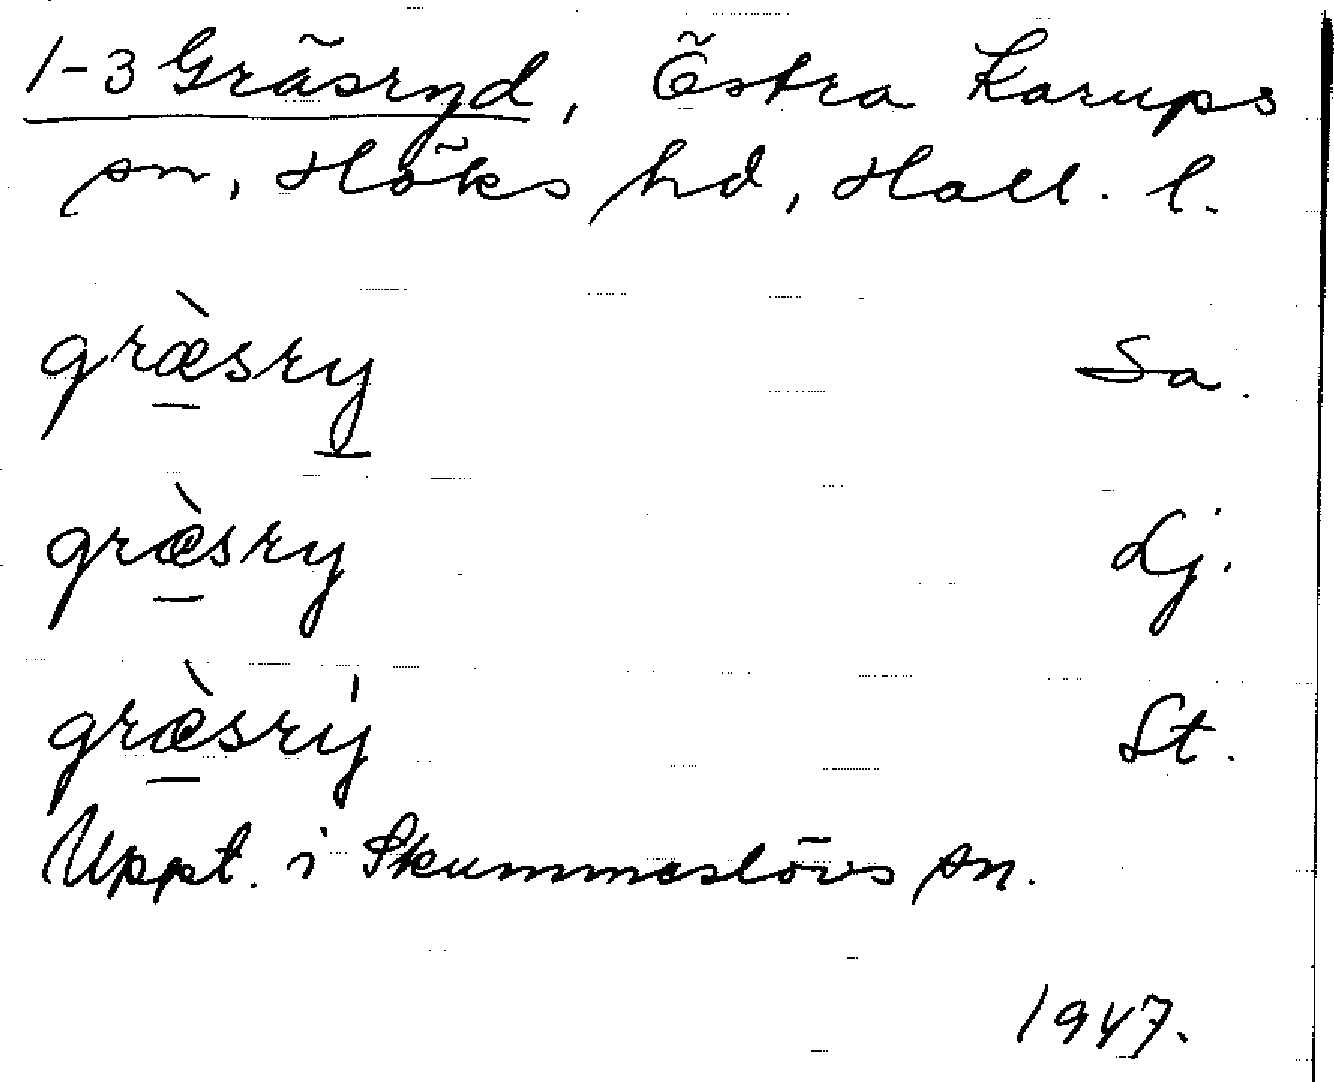 1-3 Gräsryd, Östra Karups
sn, Höks hd, Hall. l.
græ̀sry Sa.
græ̀sry Lj.
græ̀srý St.
Uppt. i Skummeslövs sn.
1947.